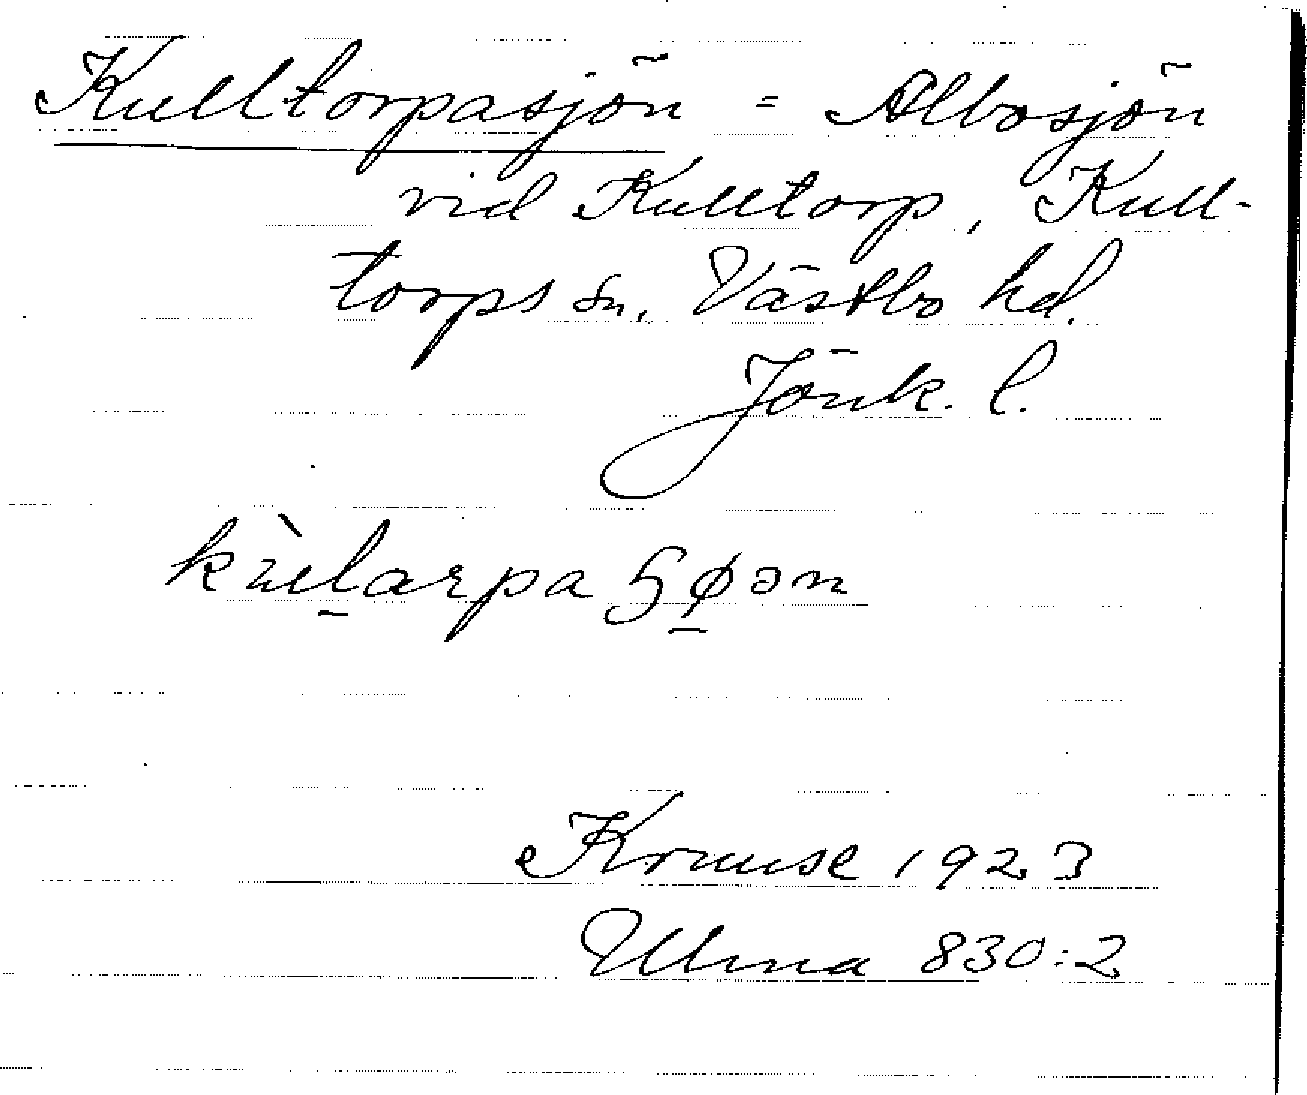 Kulltorpasjön = Albosjön
vid Kulltorp, Kull-
torps sn, Västbo hd.
Jönk. l.
Kruuse 1923
Ulma 830:2